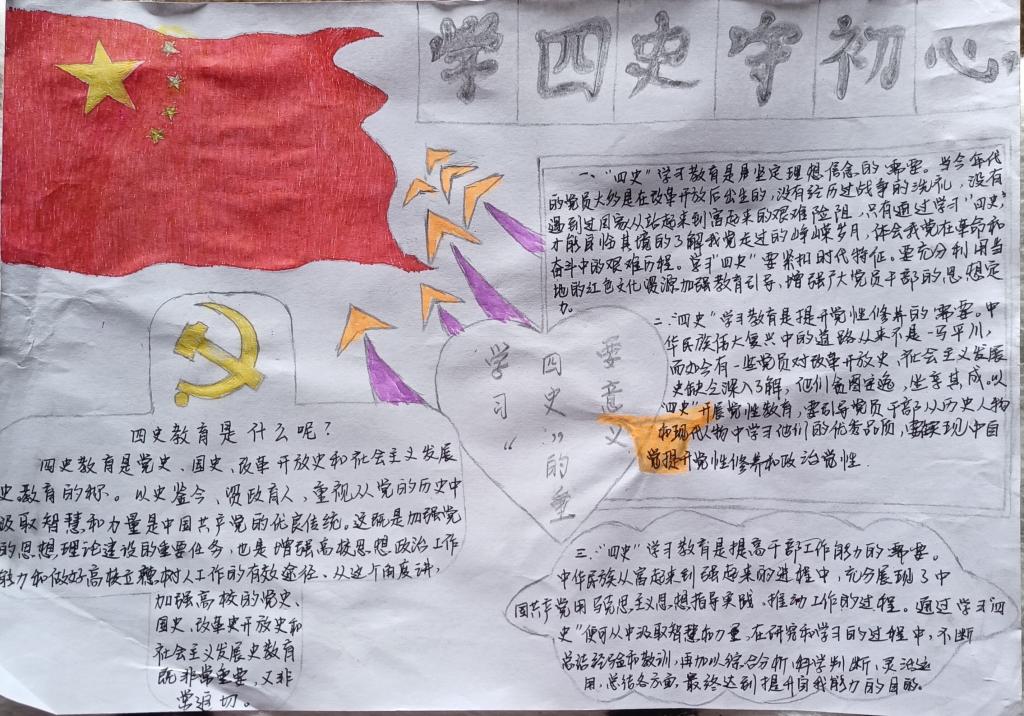 学四史守初心
四史教育是什么呢?
四史教育是党史、国史、改革开放史和社会主义发展
史教育的称。以史鉴今、资政育人,重视从党的历史中
汲取智慧和力量是中国共产党的优良传统。这既是加强党
的思想理论建设的重要任务,也是增强高校思想政治工作
能力和做好高校立德树人工作的有效途径、从这个角度讲,
加强高校的党史、
国史、改革史开放史和
社会主义发展史教育
既非常重要,又非
常迫切。
学习“
四史”的重
要意义
一、“四史”学习教育是坚定理想信念的需要。当今年代
的党员大多是在改革开放后出生的,没有经历过战争的洗礼,没有
遇到过国家从站起来到富起来的艰难险阻,只有通过学习“四史”
才能身临其境的了解我党走过的峥嵘岁月,体会我党在革命和
奋斗中的艰难历程。学习“四史”要紧扣时代特征。要充分利用当
地的红色文化资源加强教育引导,增强广大党员干部的思想定
力。
二、“四史”学习教育是提升党性修养的需要。中
华民族伟大复兴中的道路从来不是一马平川,
而如今有一些党员对改革开放史、社会主义发展
史缺乏深入了解,他们贪图安逸,坐享其成。以
“四史”开展党性教育,要引导党员干部从历史人物
和现代人物中学习他们的优秀品质,要实现中自
觉提升党性修养和政治觉性.
三、“四史”学习教育是提高干部工作能力的需要。
中华民族从富起来到强起来的进程中,充分展现了中
国共产党用马克思主义思想指导实践、推动工作的过程。通过学习“四
史”便可从中汲取智慧和力量,在研究和学习的过程中,不断
总结经验和教训,再加以综合分析、科学判断、灵活运
用、总结各方面,最终达到提升自我能力的目的。